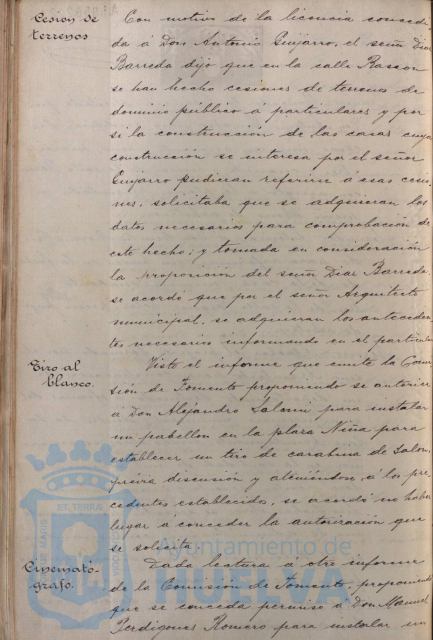 Cesion de
terrenos
Con motivo de la licencia concedi-
da á Don Antonio Guijarro, el señor Diaz
Barreda dijo que en la calle Rascon
se han hecho cesiones de terrenos de
dominio público á particulares y por
si la construcción de las casas cuya
construcción se interesa por el señor
Guijarro pudieran referirse á esas cesio-
nes, solicitaba que se adquieran los
datos necesarios para comprobación de
este hecho; y tomada en consideración
la proposición del señor Diaz Barreda,
se acordó que por el señor Arquitecto
municipal, se adquieran los anteceden-
tes necesarios informando en el particular
Tiro al
blanco.
Visto el informe que emite la Comi-
sión de Fomento proponiendo se autorice
á Don Alejandro para instalar
un pabellon en la plaza Niña para
establecer un tiro de carabina de salon,
previa discusión y ateniéndose á los pre-
cedentes establecidos, se acordó no haber
lugar á conceder la autorización que
se solicita.
Cinemató-
grafo.
Dada lectura á otro informe
de la Comisión de Fomento, proponiendo
que se conceda permiso á Don Manuel
Perdigones Romero para instalar un
Ayuntamiento de
HUELVA